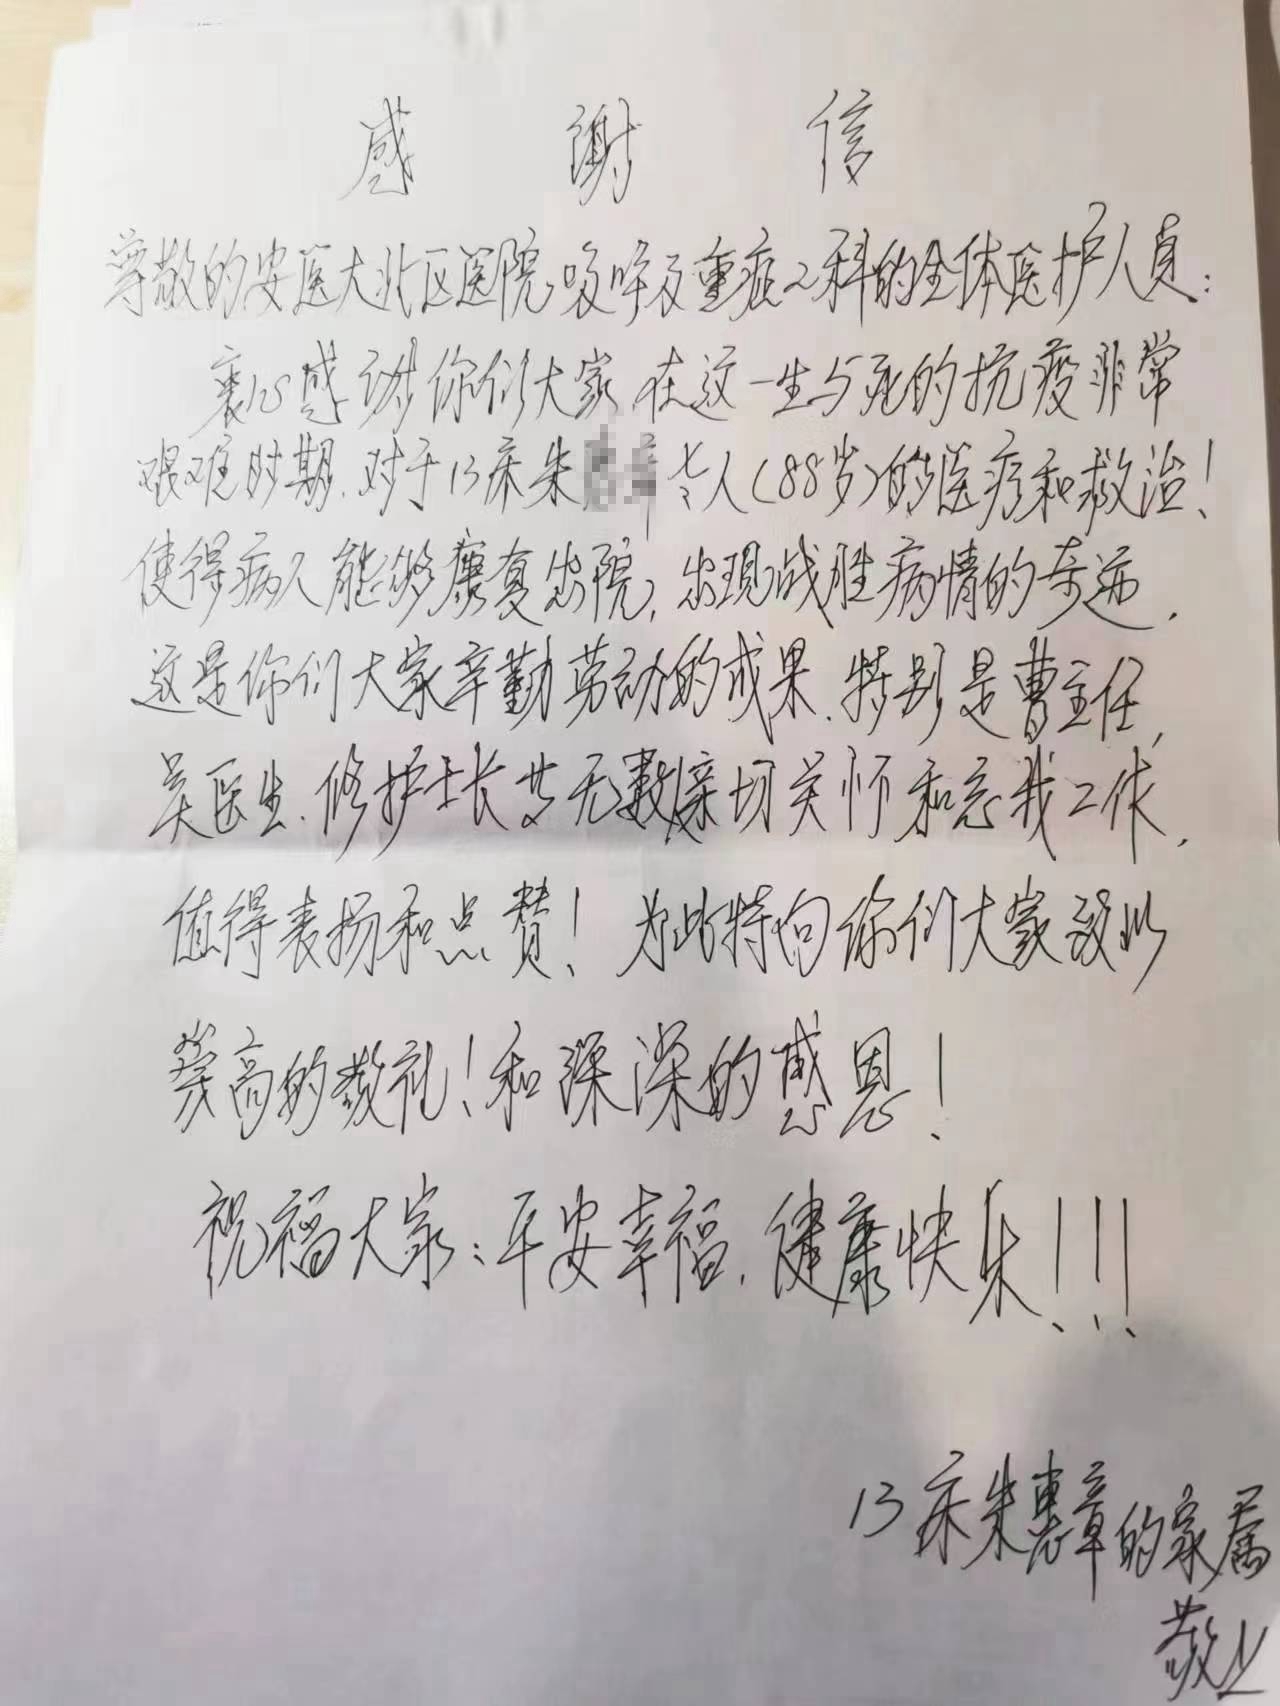 感谢信
尊敬的安医大北区医院呼吸及重症二科的全体医护人员:
衷心感谢你们大家,在这一生与死的抗疫非常
艰难时期.对于13床朱 老人(88岁)的医疗和救治!
使得病人能够康复出院,出现战胜病情的奇迹,
这是你们大家辛勤劳动的成果.特别是曹主任,
吴医生.修护士长其无数亲切关怀和忘我工作,
值得表扬和点赞!为此特向你们大家致以
崇高的敬礼!和深深的感恩!
祝福大家:平安幸福,健康快乐!!!
13床朱惠章的家属
敬上